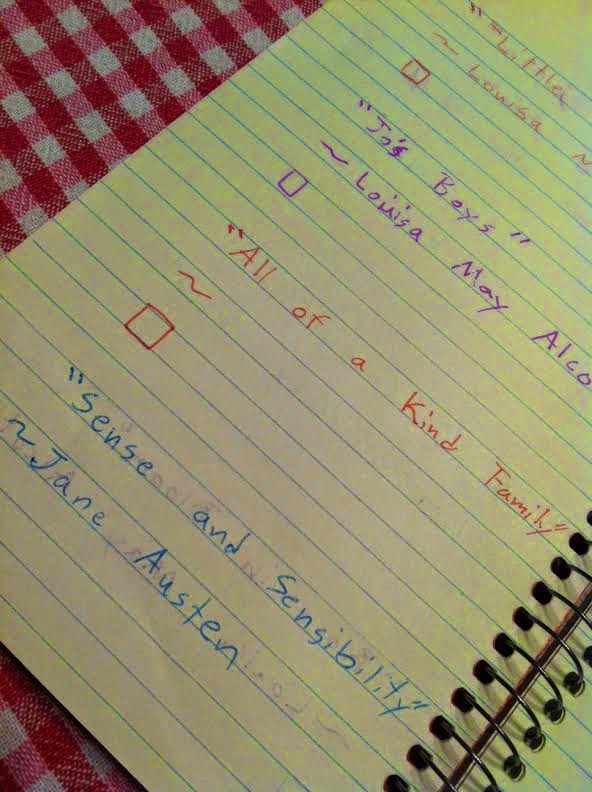 "Little
~ Louisa M
"Jo's Boys"
~ Louisa May Alco
"All of a Kind Family"
~
"Sense and Sensibility"
~ Jane Austen